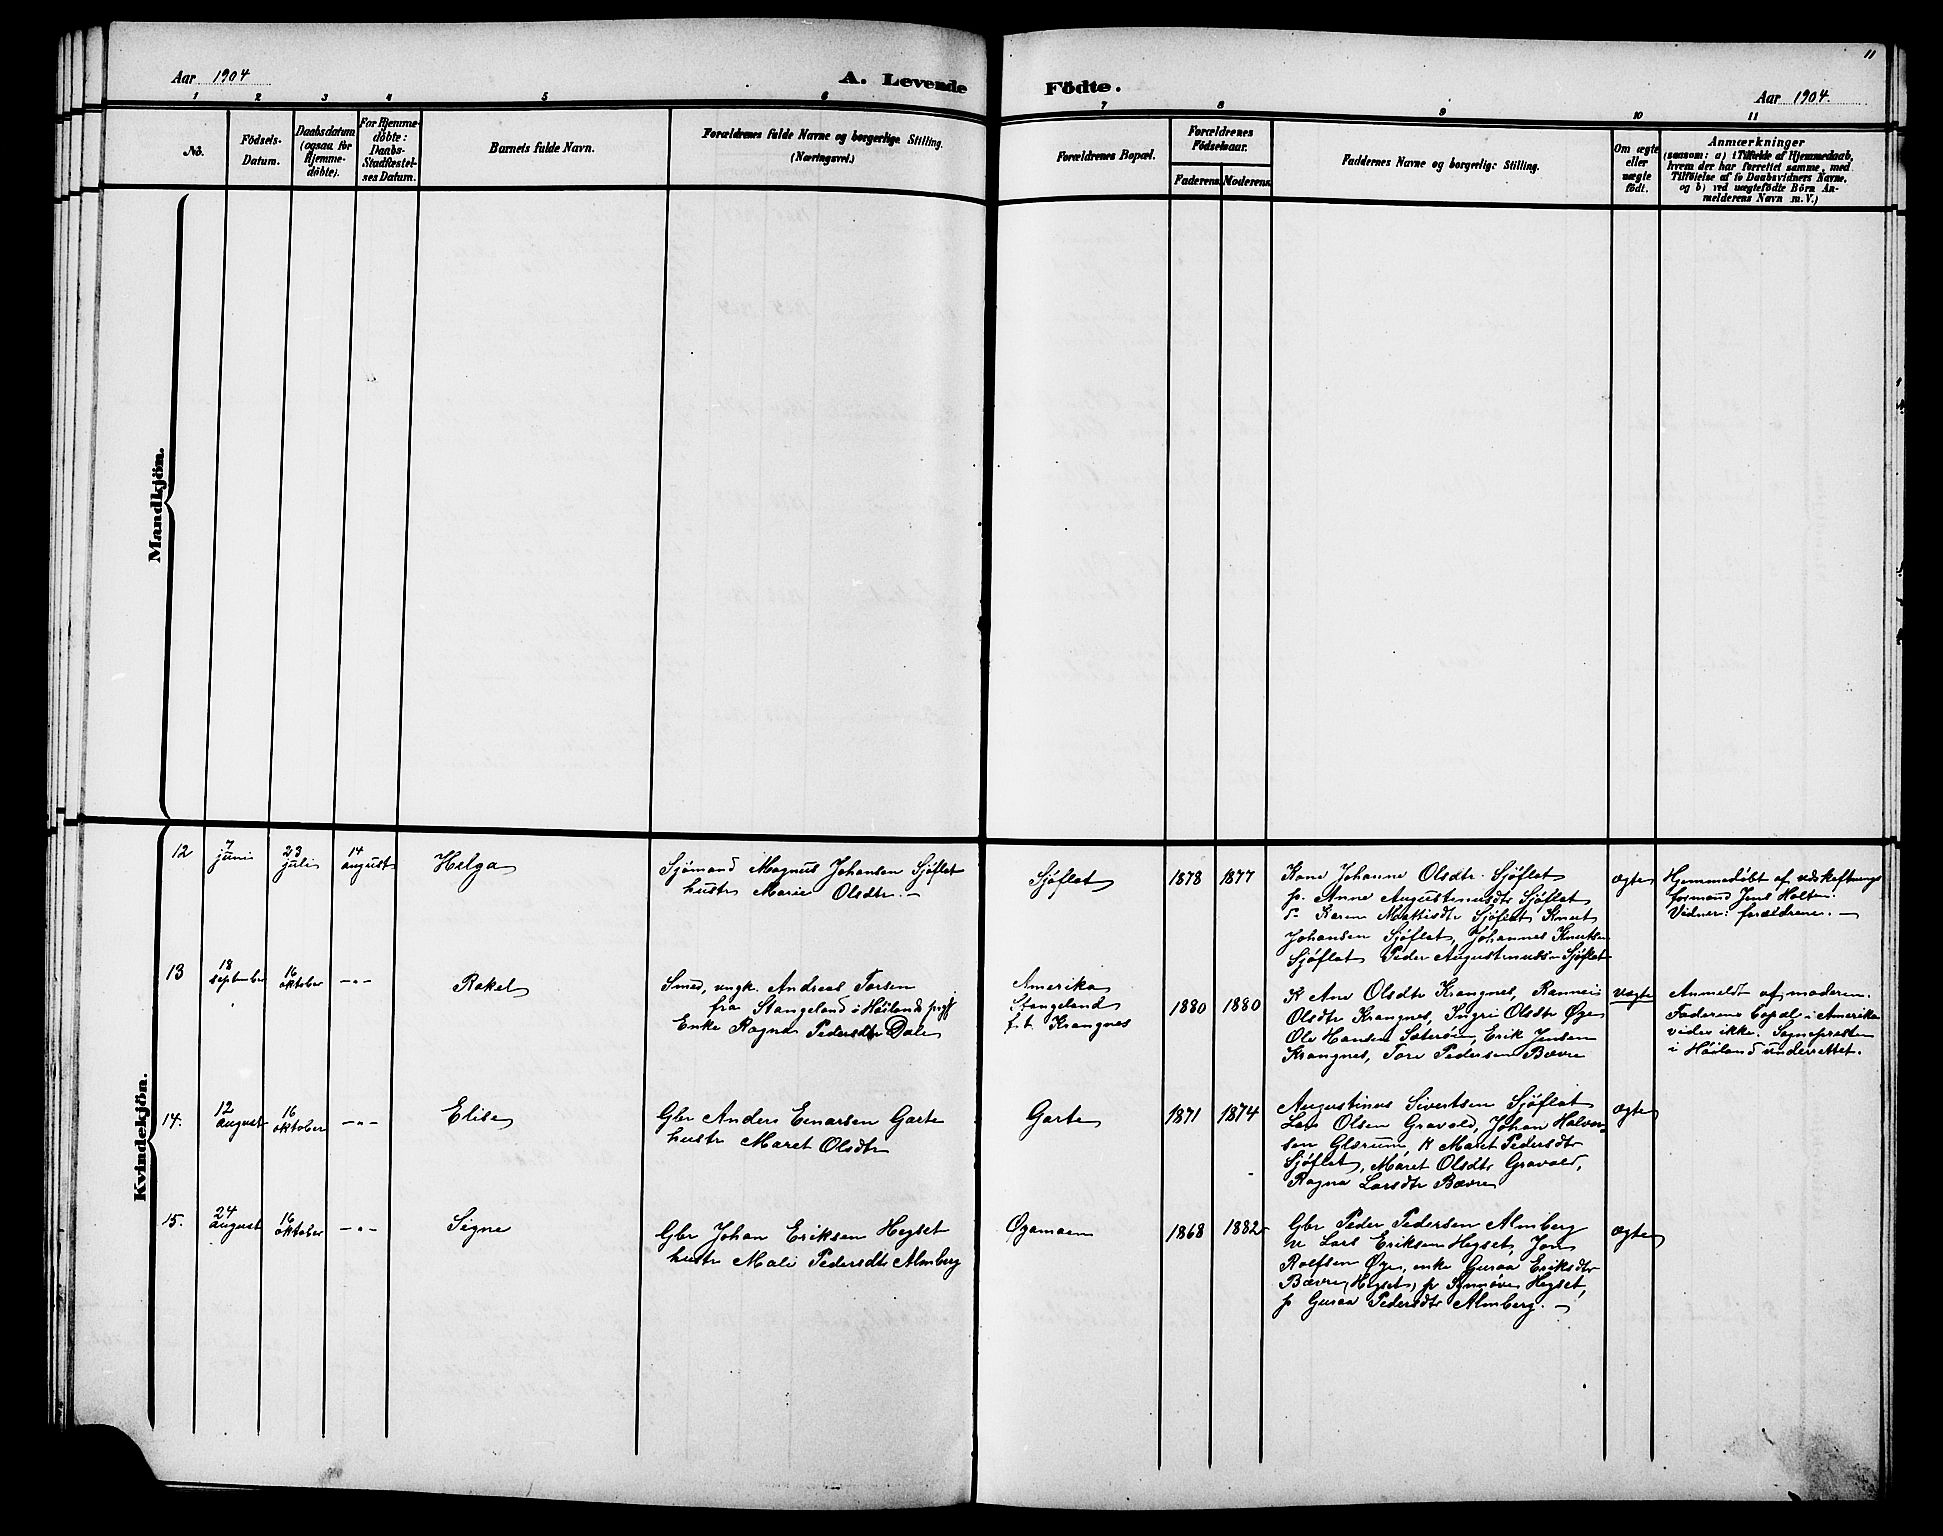 11
Aar 1904
A. Levende
Födte.
Aar 1904.
1 2 3 4 5 6 7 8 9 10 11
No.
Födsels-
Datum.
Daabsdatum
(ogsaa for
Hjemme-
döbte).
For Hjemme-
döbte:
Daabs-
Stadfæstel-
ses Datum.
Barnets fulde Navn.
Forældrenes fulde Navne og borgerlige Stilling.
(Næringsvei.)
Forældrenes Bopæl.
Forældrenes
Födselsaar.
Faderens.
Moderens.
Faddernes Navne og borgerlige Stilling.
Om ægte
eller
uægte
födt.
Anmærkninger
(saasom: a) i Tilfælde af Hjemmedaab,
hvem der har forrettet samme, med
Tilföielse af to Daabsvidners Navne,
og b) ved uægtefödte Börn An-
melderens Navn m. V.)
Mandkjön.
Kvindekjön.
12
7
juni
23
juli
14
august
Helga
Sjømand Magnus Johansen Sjøflat
hustr Marie Olsdtr. —
Sjøflat
1878
1877
Kone Johanne Olsdtr. Sjøflat
p. Anne Augustinusdtr Sjøflat
Karen Mattisdtr Sjøflat, Knut
Johansen Sjøflat, Johannes Knutsen
Sjøflat Peder Augustinussen Sjøflat
ægte
Hjemmedøbt af udskiftnings
formand Jens Holten.
Vidner: forældrene. —
13
18
september
16
oktober
— " —
Rakel
Smed, ungk. Andreas Torsen
fra Stangeland i Høilands prgj
Enke Ragna Pedersdtr Dale
Amerika
Stangeland
f.t. Krangnes
1880
1880
K Ane Olsdtr Krangnes, Rannei
Olsdtr Krangnes, Ingri Olsdtr Øye
Ole Hansen Sæterøen, Erik Jensen
Krangnes, Tore Pedersen Bævre
uægte
Anmeldt af moderen.
Faderens bopæl i Amerika
vides ikke. Sognepresten
i Høiland underrettet.
14.
12
august
16
oktober
— " —
Elise
Gbr Anders Einarsen Garte
hustr Maret Olsdtr
Garte
1871
1874
Augustinus Sivertsen Sjøflat
Lars Olsen Gravold, Johan Halvor-
sen Glærum, K Maret Pedersdtr
Sjøflat, Maret Olsdtr Gravold,
Ragna Larsdtr Bævre
ægte
15.
24
august
16
oktober
— " —
Signe
Gbr Johan Eriksen Hegset
hustr Mali Pedersdtr Almberg
Øyamoen
1868
1882
Gbr Peder Pedersen Almberg
Lars Eriksen Hegset, Jon
Rolfsen Øye, enke Guraa Eriksdtr
Bævre (Hegset) p Synnøve Hegset,
p Guraa Pedersdtr Almberg. —
ægte